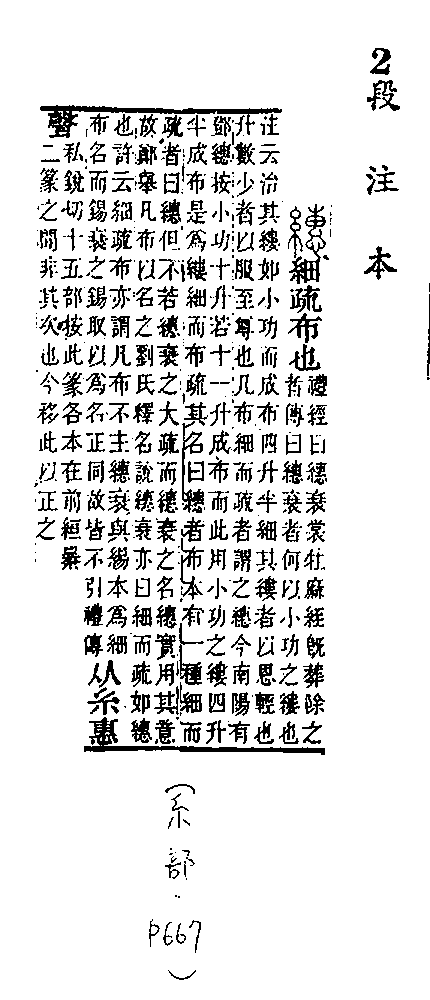 2段注本
細疏布也禮經曰繐衰裳牡麻絰旣葬除之
者傳曰繐衰者何以小功之縷也
注云治其縷如小功而成布四升半細其縷者以恩輕也
升數少者以服至尊也凡布細而疏者謂之繐今南陽有
鄧繐按小功十升若十一升成布而此用小功之縷四升
半成布是爲縷細而布疏其名曰繐者布本有一種細而
疏者曰繐但不若繐衰之大疏而繐衰之名繐實用其意
故鄭舉凡布以名之劉氏釋名說繐衰亦曰細而疏如繐
也許云細疏布亦謂凡布不主繐衰與緆本爲細
布名而錫衰之錫取以爲名正同故皆不引禮傳从糸惠
聲私銳切十五部按此篆各本在前縆纍
二篆之閒非其次也今移此以正之
(糸部.P667)